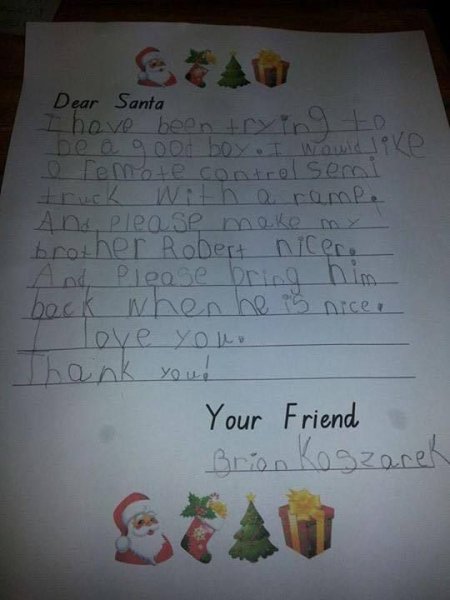 Dear Santa
I have been trying to
be a good boy. I would like
a remote control semi
truck with a ramp.
And please make my
brother Robert nicer.
And Please bring him
back when he is nice.
I love you.
Thank you!
Your Friend
Brian Kogzarek